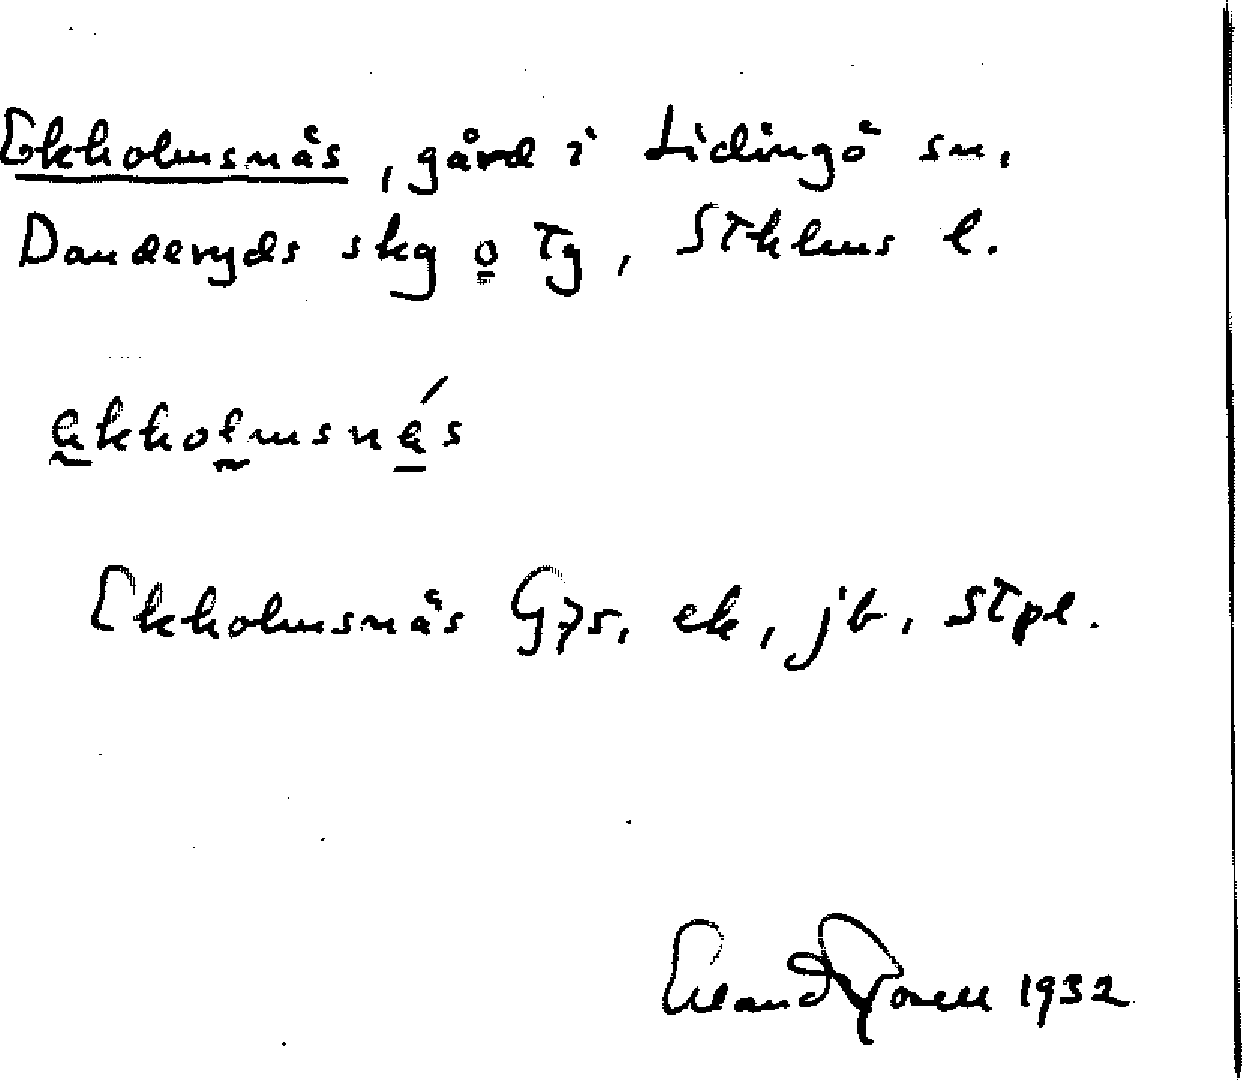 Ekholmsnäs, gård i Lidingö sn,
Danderyds skg o Tg, Sthlms l.
ekholmsnés
Ekholmsnäs G75, ek, jb, Stpl.
Erland 1932